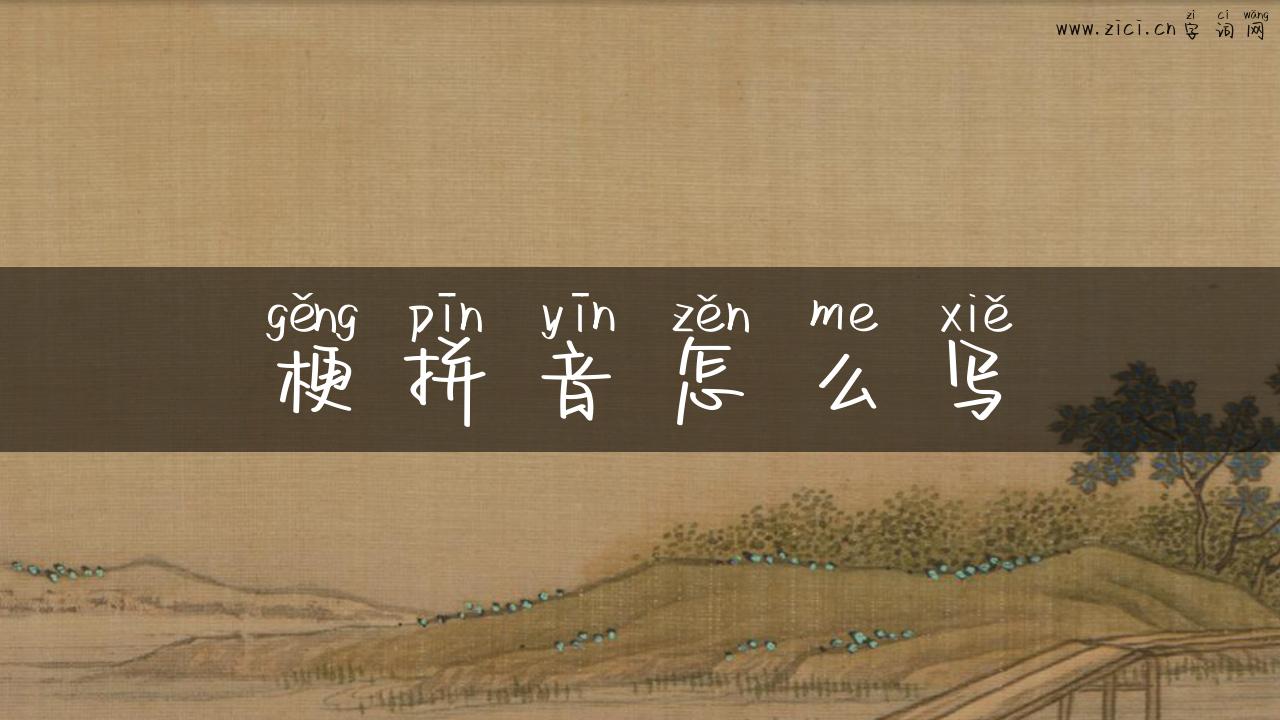 zì cí wǎng
www.zici.cn字词网
gěng pīn yīn zěn me xiě
梗拼音怎么写